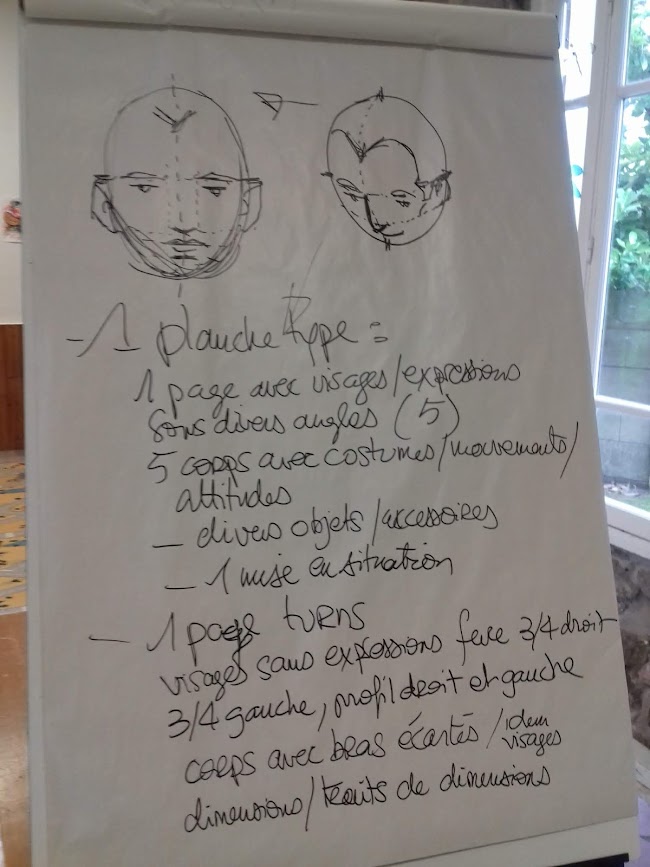 - 1 planche type =
1 page avec visages/expressions
sous divers angles (5)
5 corps avec costumes/mouvements/
attitudes
- divers objets/accessoires
- 1 mise en situation
- 1 page turns
visages sans expressions face 3/4 droit
3/4 gauche, profil droit et gauche
corps avec bras écartés/idem
visages
dimensions/traits de dimensions